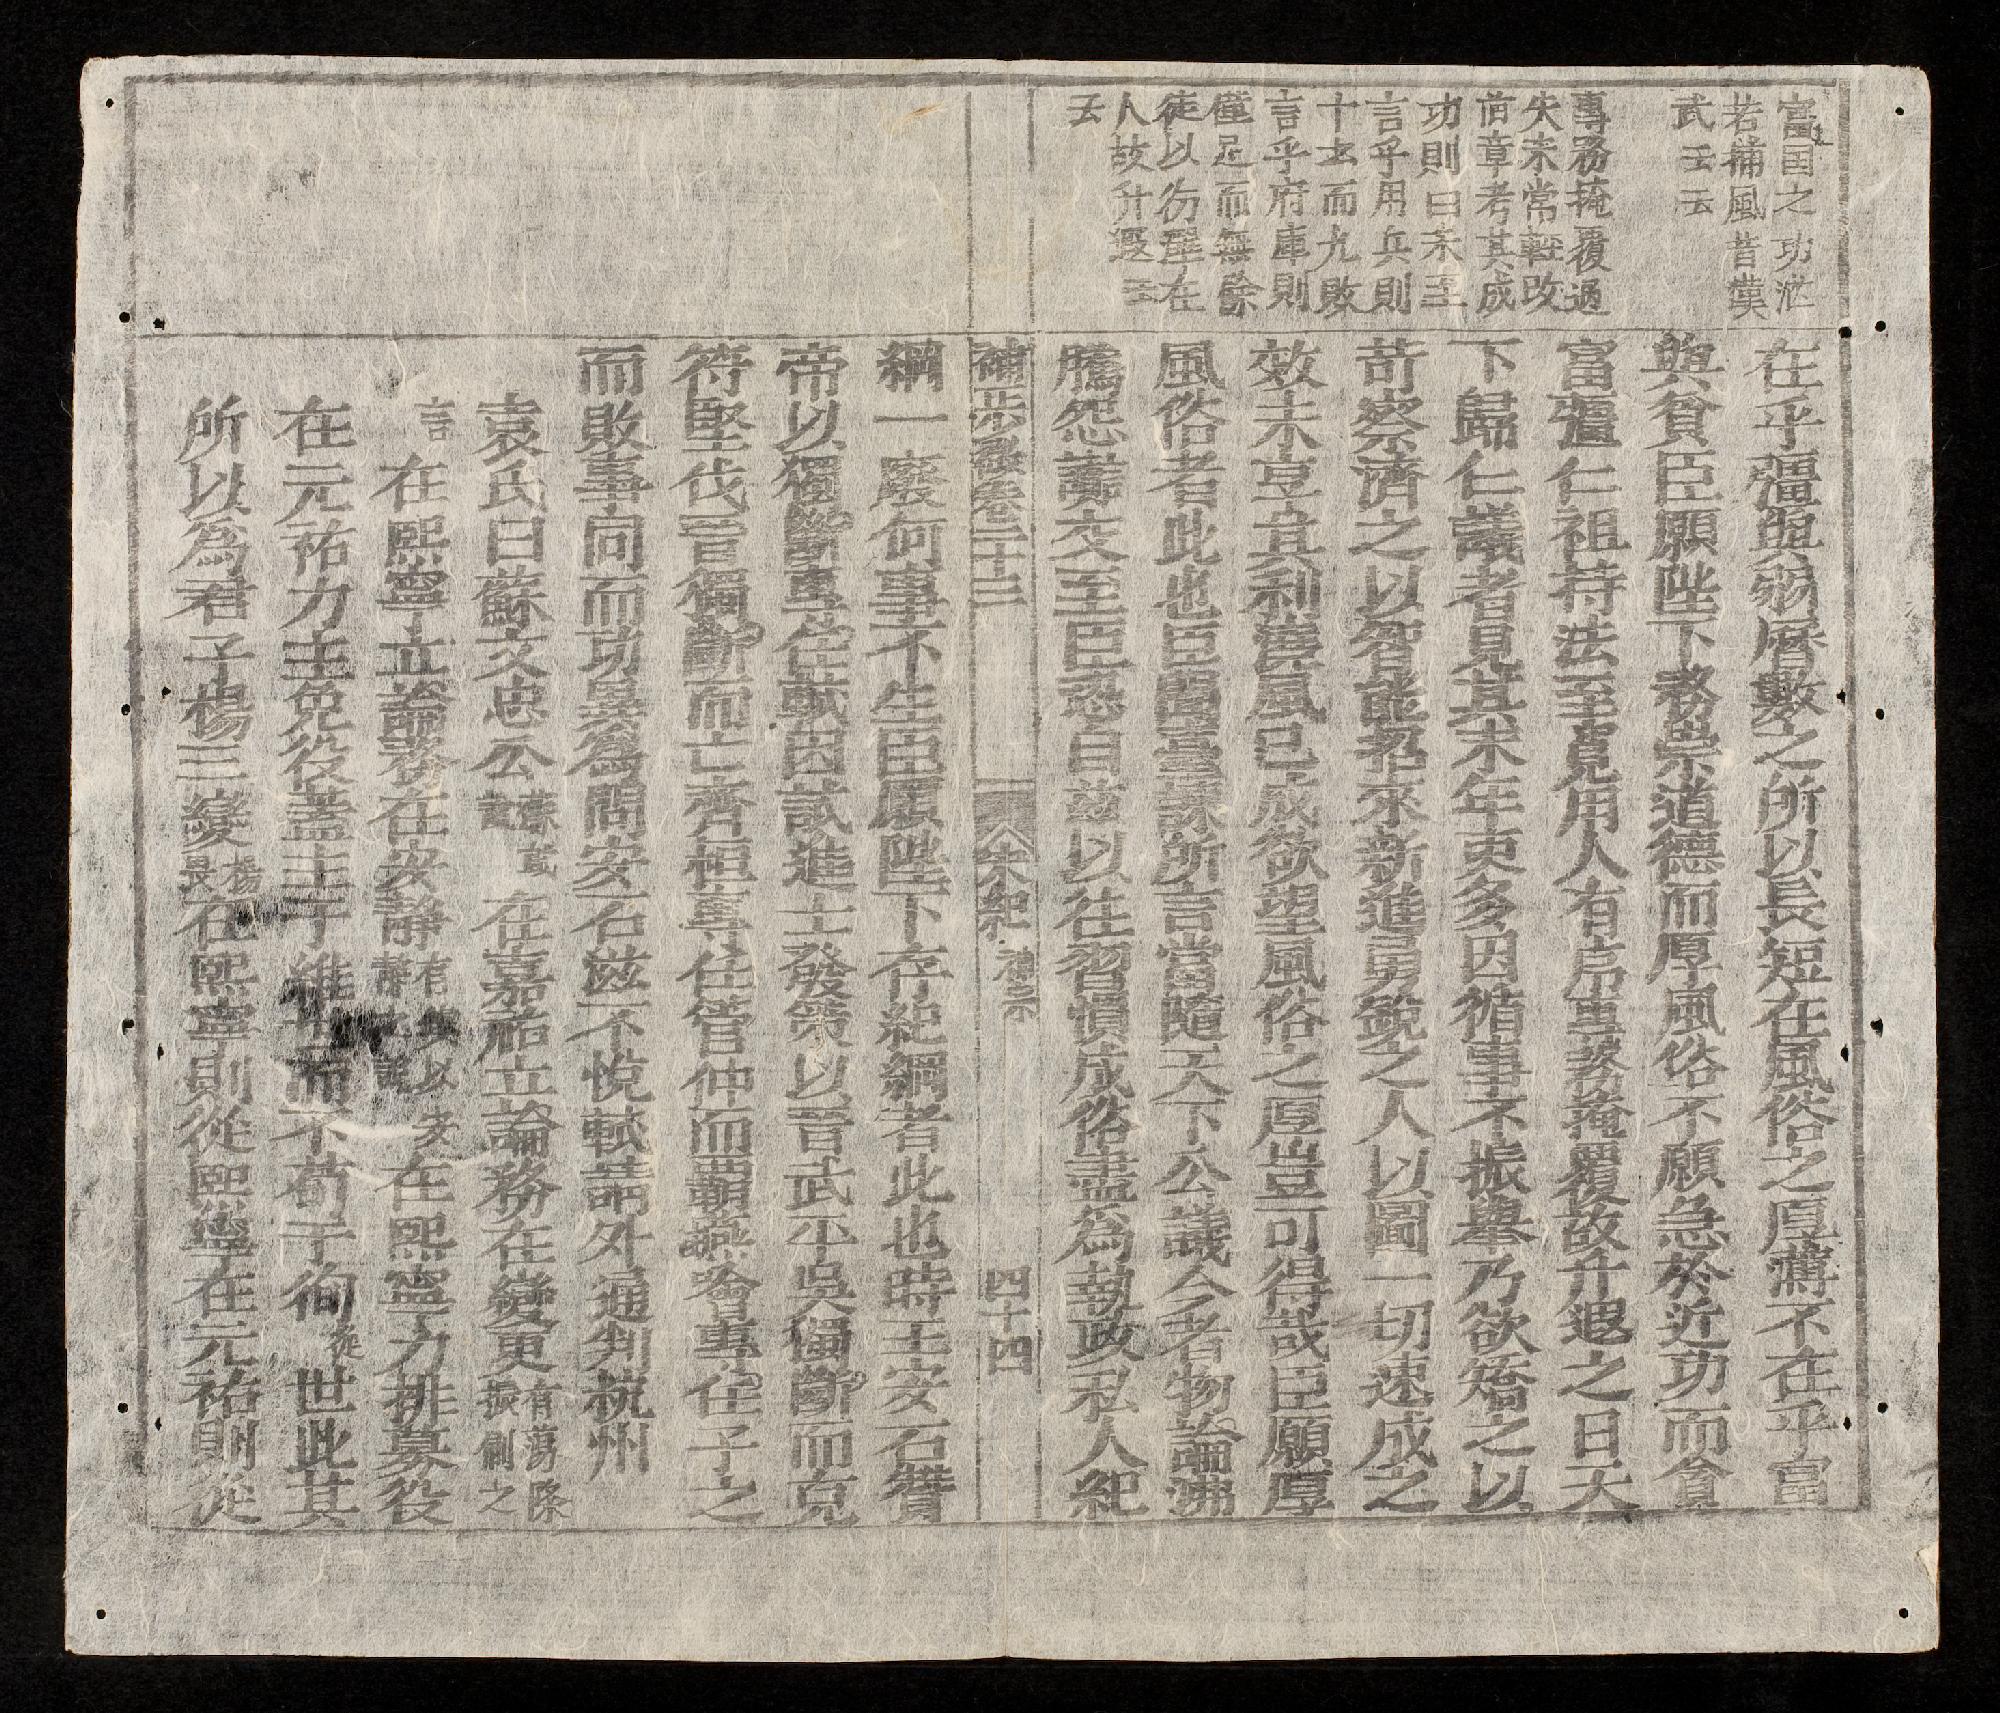 富国之功
若捕風昔漢
武云云
專務掩覆過
失未常輕改
首章考其成
功則曰未至
言乎用兵則
十出而九敗
言乎府庫則
僅足而無餘
徒以仁澤在
人故升遐云
云
在乎彊與弱曆數之所以長短在風俗之厚薄不在乎富
與貧臣願陛下務崇道德而厚風俗不願急於近功而貪
富彊仁祖持法至寛用人有序專務掩覆故升遐之日天
下歸仁議者見其末年吏多因循事不振舉乃欲矯之以
苛察濟之以智能招來新進勇銳之人以圖一切速成之
效未享其利澆風已成欲望風俗之厚豈可得哉臣願厚
風俗者此也臣聞臺諫所言當隨天下公議今者物論沸
騰怨讟交至臣恐自兹以往習慣成俗盡為執政私人紀
補歩卷二十三 宋紀 神宗 四十四
綱一廢何事不生臣願陛下存紀綱者此也時王安石贊
帝以獨斷專任軾因試進士發策以晋武平吳獨斷而克
符堅伐晋獨斷而亡齊桓專任管仲而覇燕噲專任子之
而敗事同而功異為問安石滋不悅軾請外通判杭州
袁氏曰蘇文忠公蘇軾謚在嘉祐立論務在變更有蕩滌振刷之
言在熙寧立論務在安靜有以安靜在熙寧力排募役
在元祐力主免役蓋主于維而不苟于徇從世此其
所以為君子楊三變楊畏在熙寧則從熙寧在元祐則從